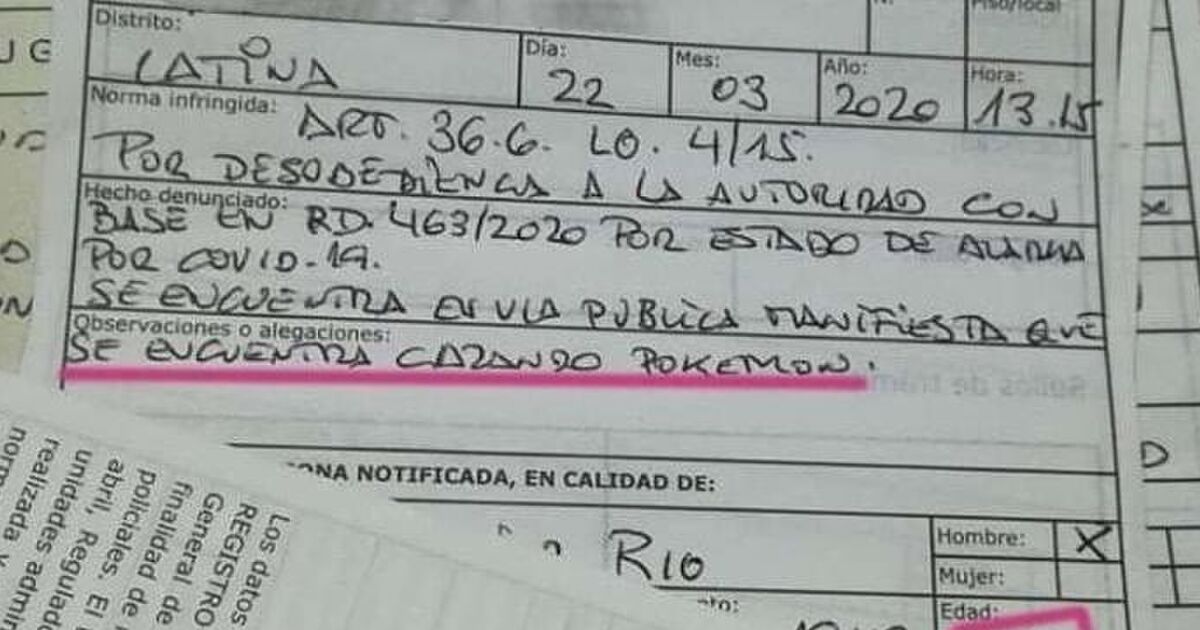 Distrito:
LATINA
Día:
22
Mes:
03
Año:
2020
Piso/local
Hora:
13.15
Norma infringida:
ART. 36.6. LO. 4/15.
POR DESOBEDIENCA A LA AUTORIDAD CON
Hecho denunciado:
BASE EN RD. 463/2020 POR ESTADO DE ALARMA
POR COVID-19.
SE ENCUENTRA EN VIA PUBLICA MANIFIESTA QUE
Observaciones o alegaciones:
SE ENCUENTRA CAZANDO POKEMON.
Sellos de trám
NA NOTIFICADA, EN CALIDAD DE:
RIO
Hombre:
X
Mujer:
Edad:
Los datos
REGISTRO
General de
finalidad de
policiales. El
abril, Regulado
unidades admin
realizada